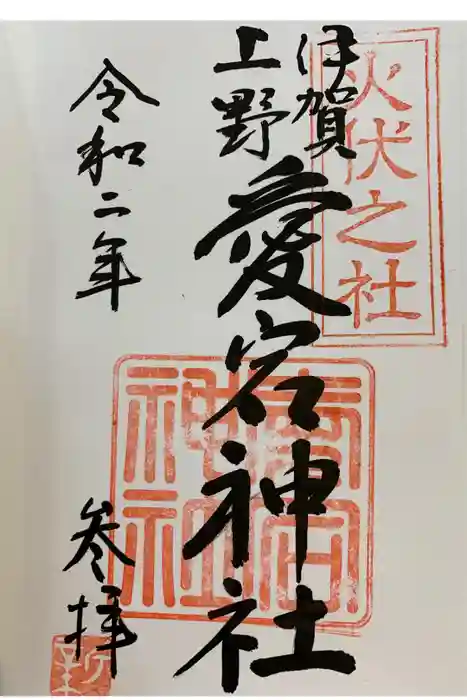 火伏之社
伊賀
上野
愛宕神社
令和二年
参拝